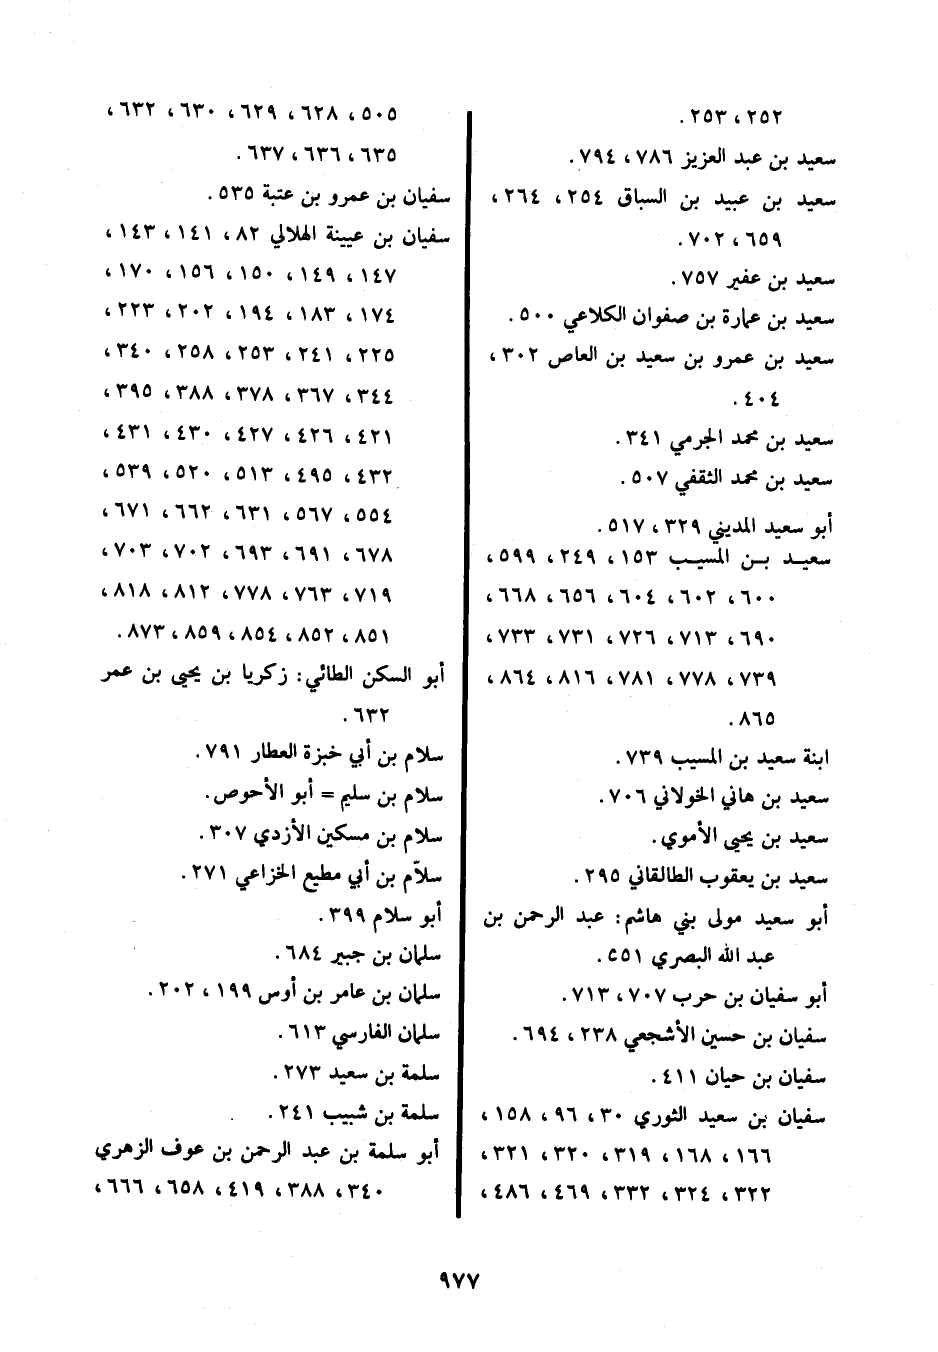 ٢٥٢، ٢٥٣.
سعيد بن عبد العزيز ٧٨٦، ٧٩٤.
سعيد بن عبيد بن السباق ٢٥٤، ٢٦٤،
٦٥٩، ٧٠٢.
سعيد بن عفير ٧٥٧.
سعيد بن عمارة بن صفوان الكلاعي ٥٠٠.
سعيد بن عمرو بن سعيد بن العاص ٣٠٢،
٤٠٤.
سعيد بن محمد الجرمي ٣٤١.
سعيد بن محمد الثقفي ٥٠٧.
أبو سعيد المديني ٣٢٩، ٥١٧.
سعيد بن المسيب ١٥٣، ٢٤٩، ٥٩٩،
٦٠٠، ٦٠٢، ٦٠٤، ٦٥٦، ٦٦٨،
٦٩٠، ٧١٣، ٧٢٦، ٧٣١، ٧٣٣،
٧٣٩، ٧٧٨، ٧٨١، ٨١٦، ٨٦٤،
٨٦٥.
ابنة سعيد بن المسيب ٧٣٩.
سعيد بن هاني الخولاني ٧٠٦.
سعيد بن يحيى الأموي.
سعيد بن يعقوب الطالقاني ٢٩٥.
أبو سعيد مولى بني هاشم: عبد الرحمن بن
عبد الله البصري ٥٥١.
أبو سفيان بن حرب ٧٠٧، ٧١٣.
سفيان بن حسين الأشجعي ٢٣٨، ٦٩٤.
سفيان بن حيان ٤١١.
سفيان بن سعيد الثوري ٣٠، ٩٦، ١٥٨،
١٦٦، ١٦٨، ٣١٩، ٣٢٠، ٣٢١،
٣٢٢، ٣٢٤، ٣٣٢، ٤٦٩، ٤٨٦،
٥٠٥، ٦٢٨، ٦٢٩، ٦٣٠، ٦٣٢،
٦٣٥، ٦٣٦، ٦٣٧.
سفيان بن عمرو بن عتبة ٥٣٥.
سفيان بن عيينة الهلالي ٨٢، ١٤١، ١٤٣،
١٤٧، ١٤٩، ١٥٠، ١٥٦، ١٧٠،
١٧٤، ١٨٣، ١٩٤، ٢٠٢، ٢٢٣،
٢٢٥، ٢٤١، ٢٥٣، ٢٥٨، ٣٤٠،
٣٤٤، ٣٦٧، ٣٧٨، ٣٨٨، ٣٩٥،
٤٢١، ٤٢٦، ٤٢٧، ٤٣٠، ٤٣١،
٤٣٢، ٤٩٥، ٥١٣، ٥٢٠، ٥٣٩،
٥٥٤، ٥٦٧، ٦٣١، ٦٦٢، ٦٧١،
٦٧٨، ٦٩١، ٦٩٣، ٧٠٢، ٧٠٣،
٧١٩، ٧٦٣، ٧٧٨، ٨١٢، ٨١٨،
٨٥١، ٨٥٢، ٨٥٤، ٨٥٩، ٨٧٣.
أبو السكن الطائي: زكريا بن يحيى بن عمر
٦٣٢.
سلام بن أبي خبزة العطار ٧٩١.
سلام بن سليم = أبو الأحوص.
سلام بن مسكين الأزدي ٣٠٧.
سلاّم بن أبي مطيع الخزاعي ٢٧١.
أبو سلام ٣٩٩.
سلمان بن جبير ٦٨٤.
سلمان بن عامر بن أوس ١٩٩، ٢٠٢.
سلمان الفارسي ٦١٣.
سلمة بن سعيد ٢٧٣.
سلمة بن شبيب ٢٤١.
أبو سلمة بن عبد الرحمن بن عوف الزهري
٣٤٠، ٣٨٨، ٤١٩، ٦٥٨، ٦٦٦،
٩٧٧